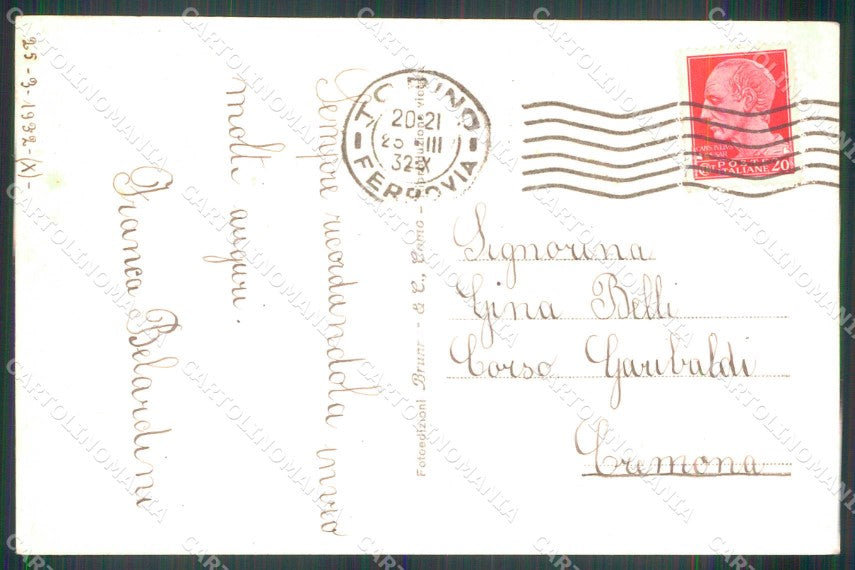 25-3-1932-(X)-
Sempre ricordandola invio
molti auguri.
Franca Belardini
Fotoedizioni Brunner & C., Como - Riproduzione vietata
TORINO
FERROVIA
20-21
III
32 X
POSTE ITALIANE 20
Signorina
Gina Belli
Corso Garibaldi
Cremona
CARTOLINOMANIA